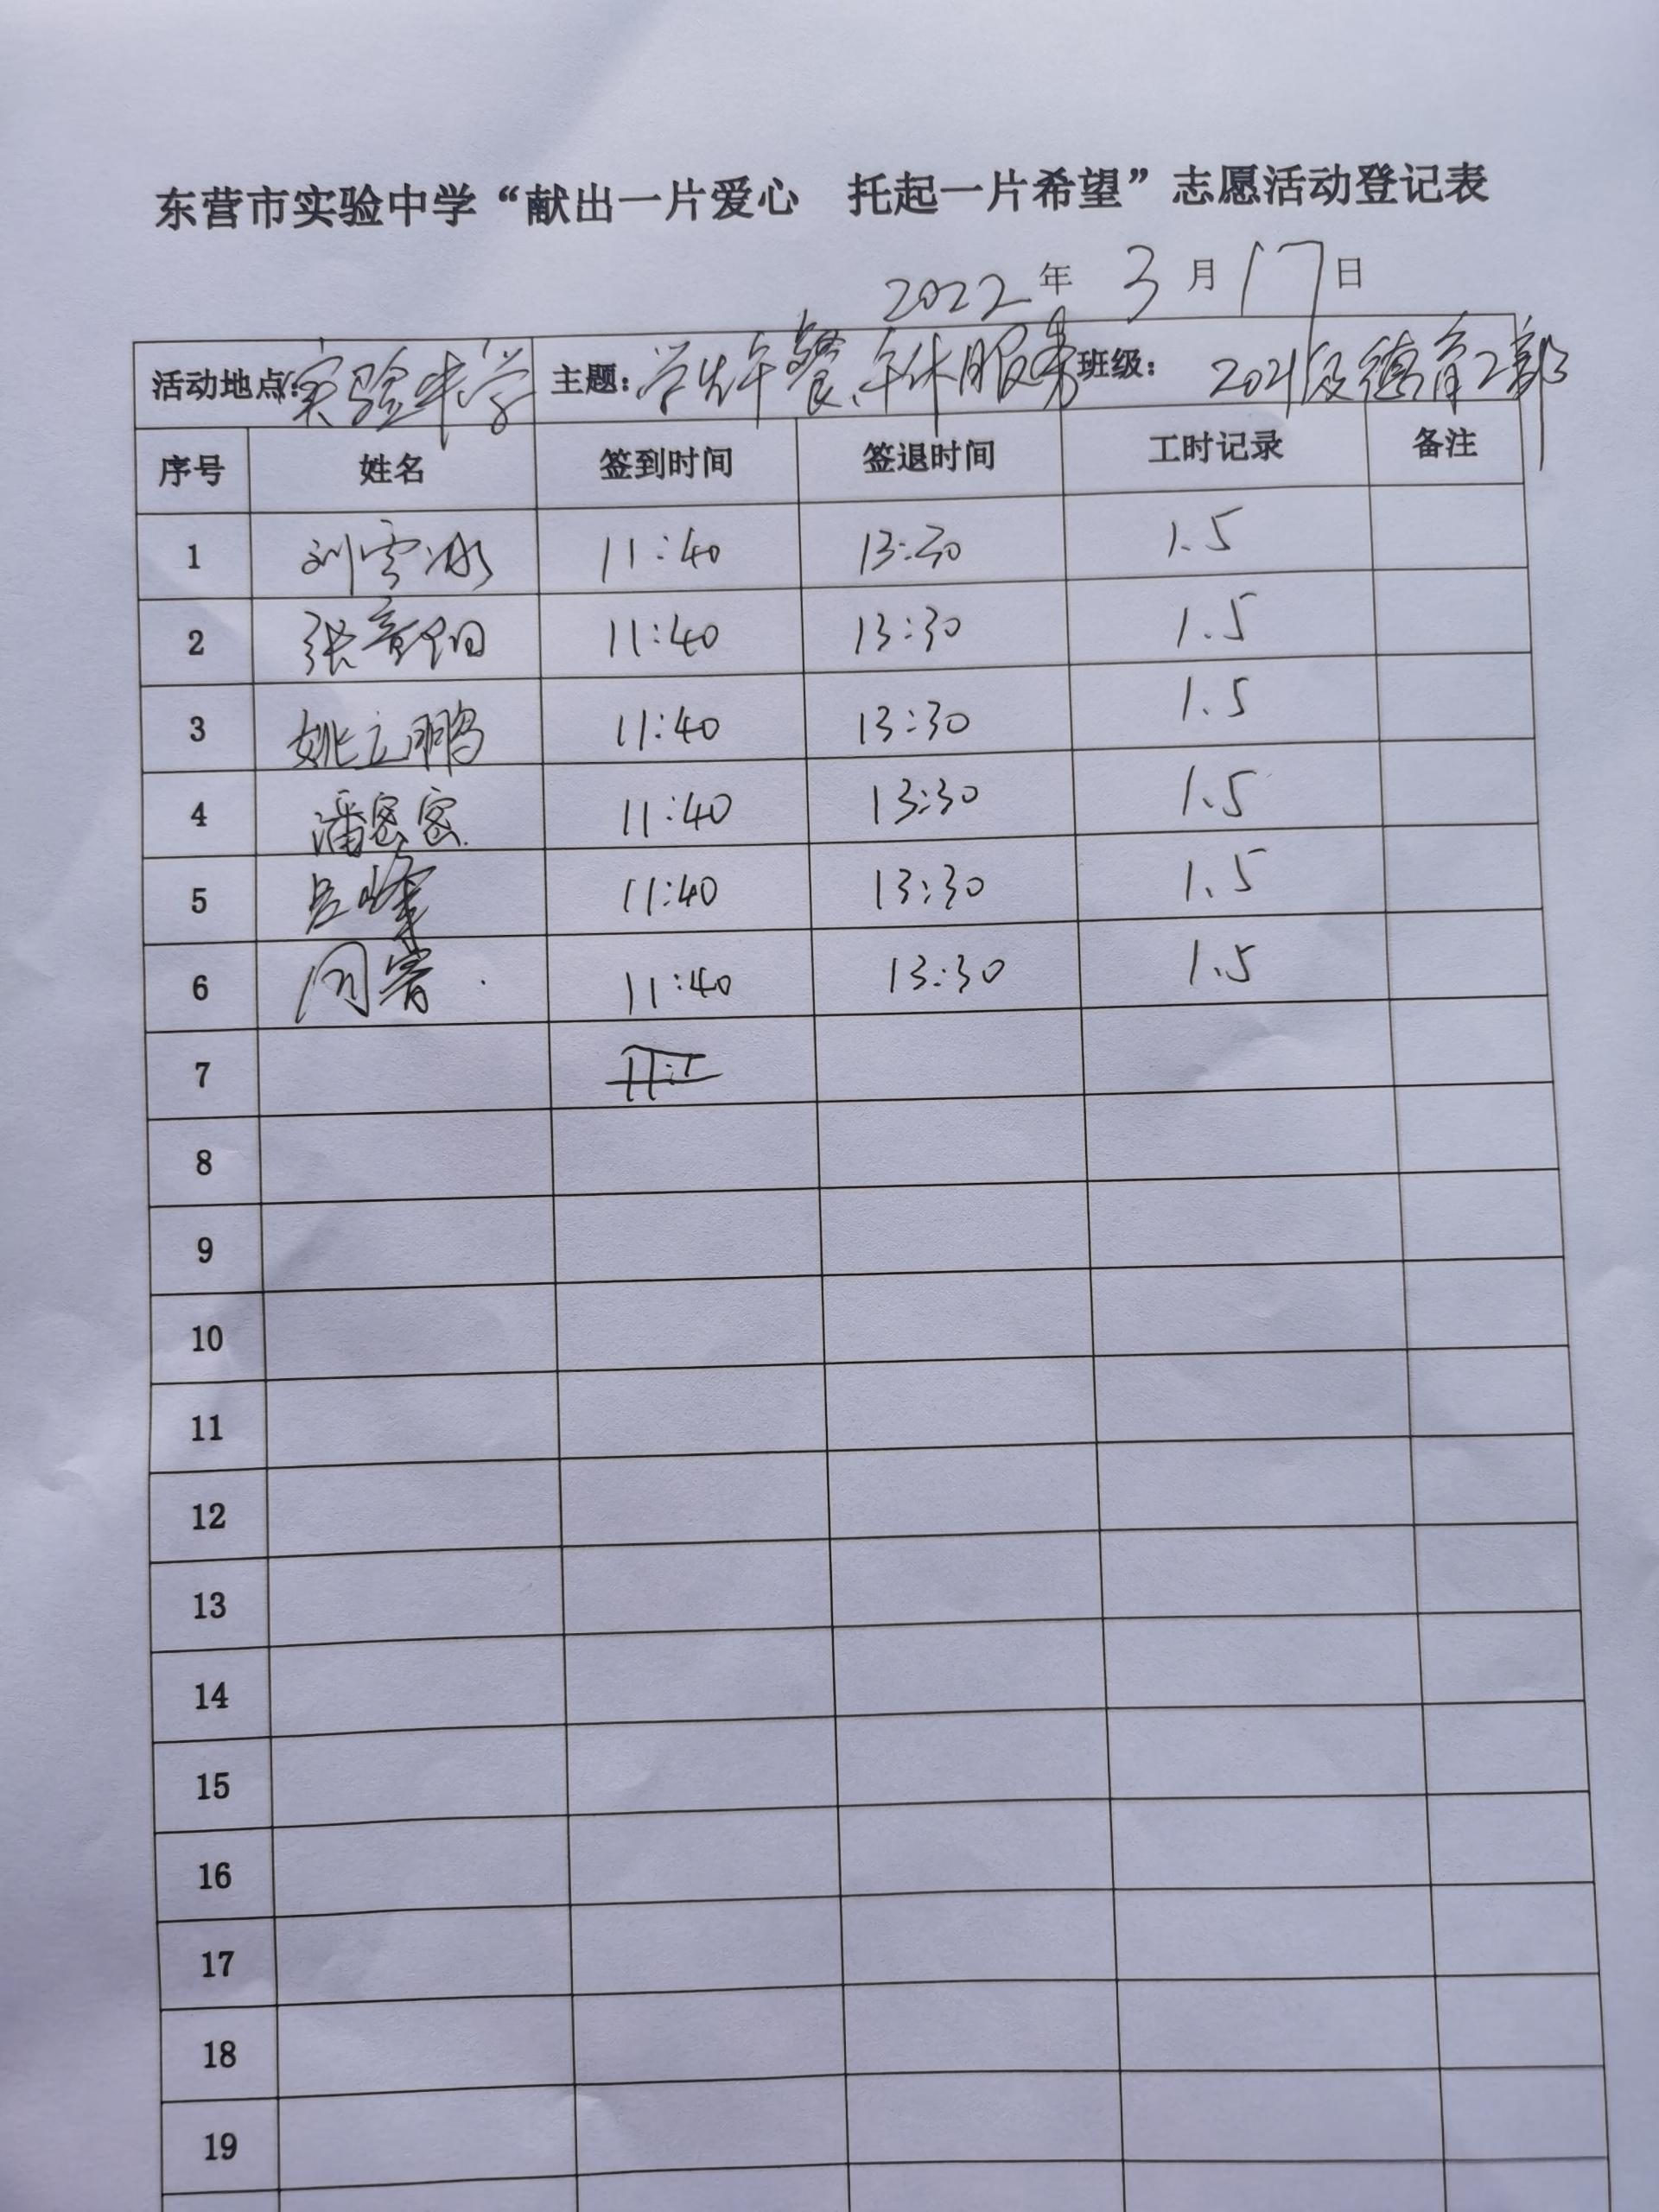 东营市实验中学“献出一片爱心 托起一片希望”志愿活动登记表
2022年 3月17日
活动地点:实验中学 主题:学生午餐、午休服务 班级: 2021级德育2部
序号 姓名 签到时间 签退时间 工时记录 备注
1 刘雪冰 11:40 13:30 1.5
2 张 11:40 13:30 1.5
3 姚立鹏 11:40 13:30 1.5
4 潘密密 11:40 13:30 1.5
5 吕峰 11:40 13:30 1.5
6 11:40 13:30 1.5
7
8
9
10
11
12
13
14
15
16
17
18
19